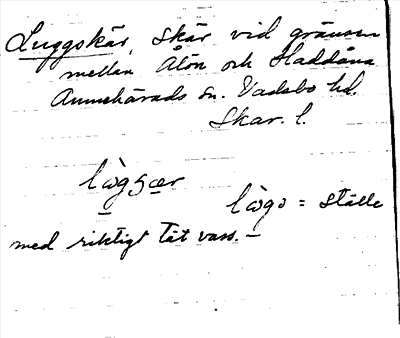 Luggskär, skär vid gränsen
mellan Ålön och Haddåna
Amnehärads sn. Vadsbo hd.
Skar. l.
lòg5ær
lògə = ställe
med riktigt tät vass. –